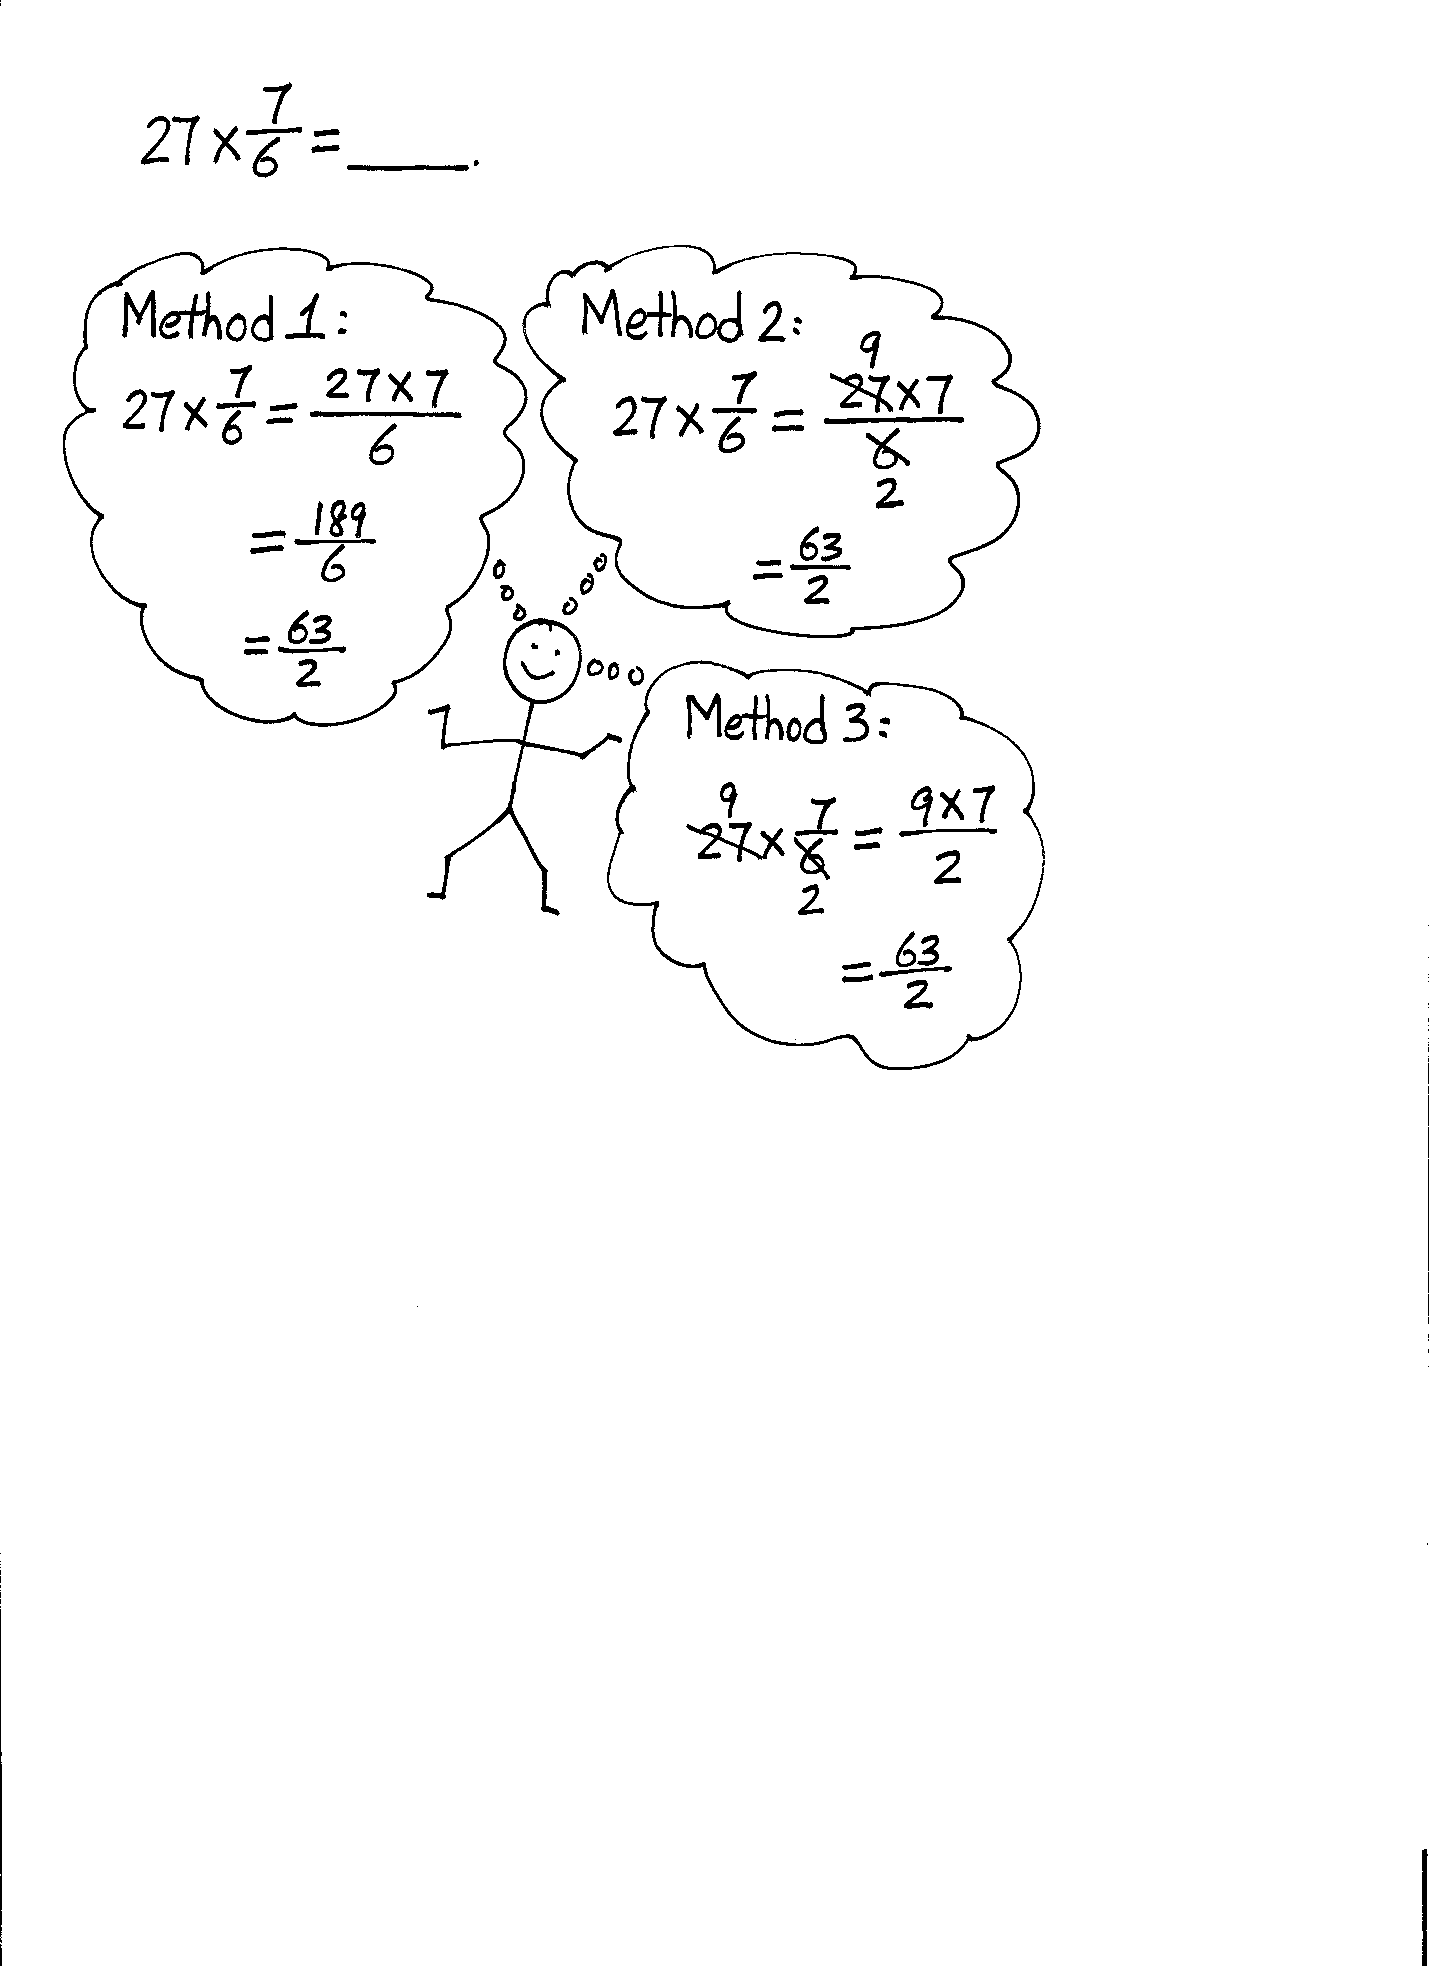 27 × 7/6 = ____.
Method 1:
27 × 7/6 = 27 × 7/6
= 189/6
= 63/2
Method 2:
9
27 × 7/6 = 27 × 7/6
2
= 63/2
Method 3:
9
27 × 7/6 = 9 × 7/2
2
= 63/2